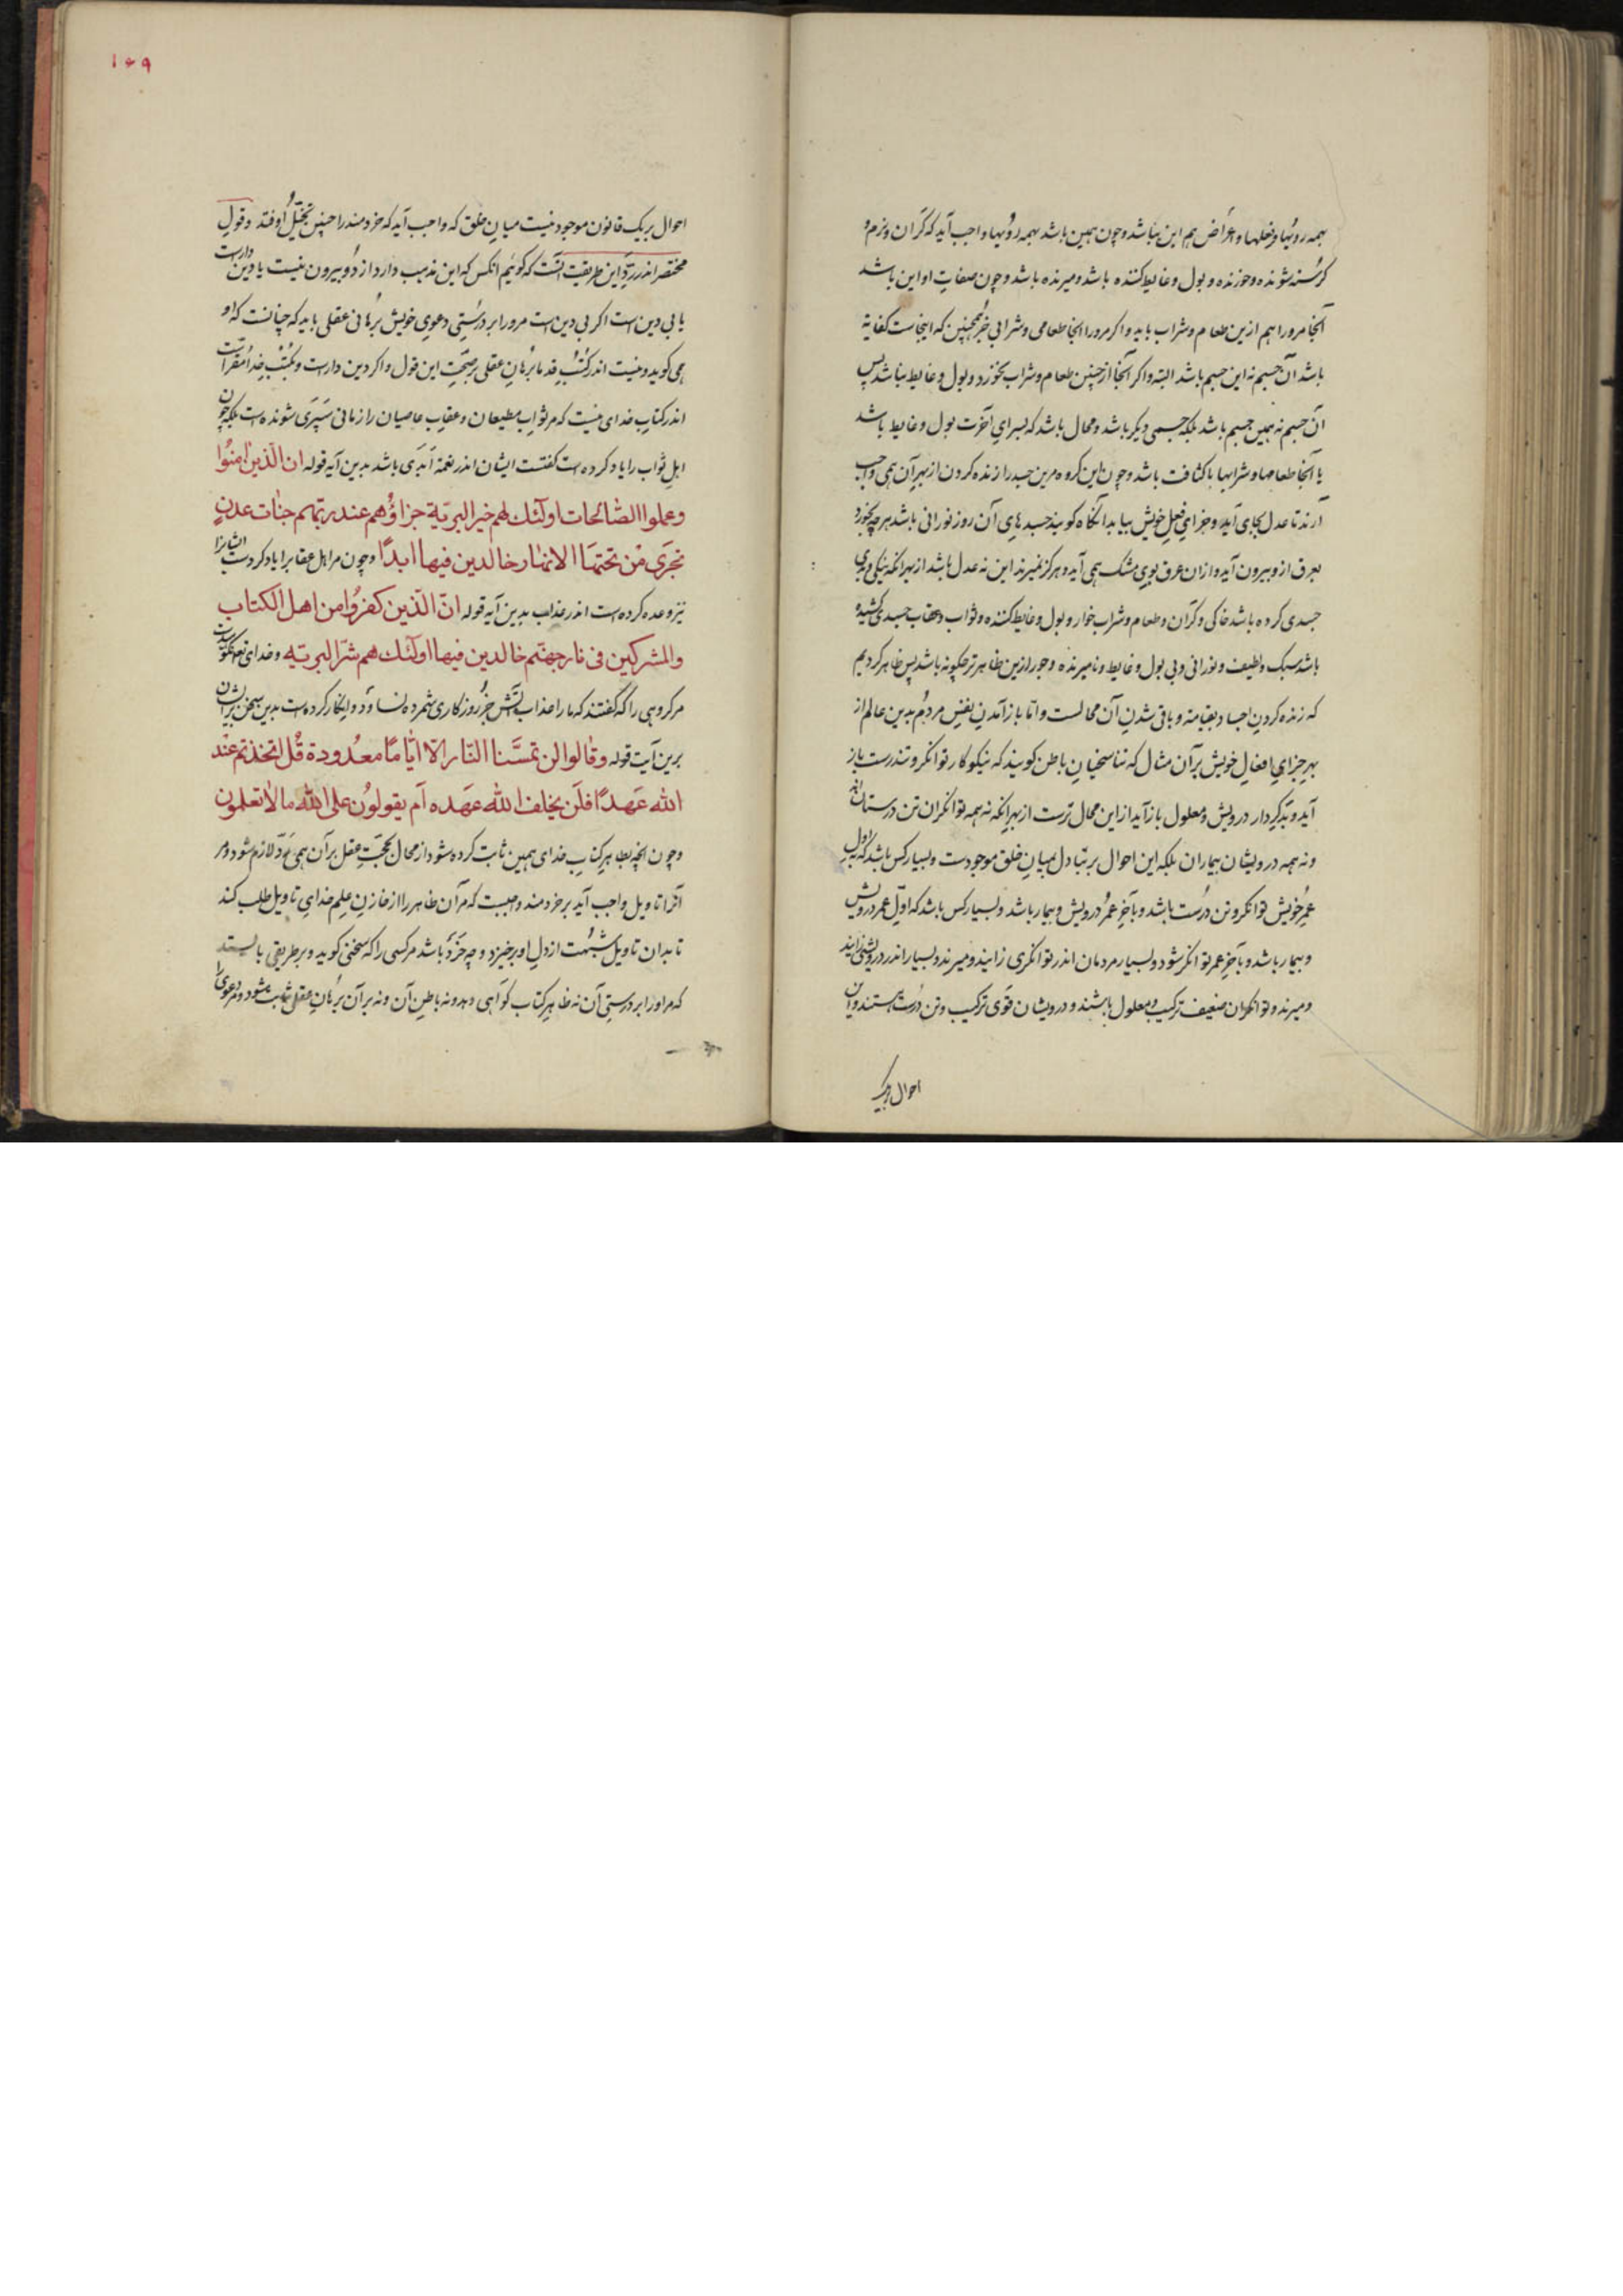 همه رویها و فعلها و اعراض هم این نباشد و چون همین باشد بهمه رویها واجب آید که گران وزم و
گرسنه شونده و خورنده و بول و غایط کننده باشد و میرنده باشد و چون صفات او این باشد
آنجا مرورا هم ازین طعام و شراب باید واکر مرورا آنجا طعامی و شرابی جز همچنین که اینجاست کفایة
باشد آن جسم نه این جسم باشد البته واکر آنجا از چنین طعام و شراب بخورد و بول و غایط نباشد پس
آن جسم نه همین جسم باشد بلکه جسمی دیکر باشد و محال باشد که بسرای آخرت بول و غایط باشد
یا آنجا طعامها و شرابها با کثافت باشد و چون این کروه مرین جسد را زنده کردن از بهر آن همی واجب
آرند تا عدل بجای آید و جزای فعل خویش بیابد آنکاه کویند جسدهای آن روز نورانی باشد هر چه بخورد
بعرق ازو بیرون آید و ازان عرق بوی مشک همی آید و هرکز نمیرند این نه عدل باشد از بهر آنکه نیکی و بدی
جسدی کرده باشد خاکی و کران و طعام و شراب خوار و بول و غایط کننده و ثواب و عقاب جسدی کشیده
باشد سبک و لطیف و نورانی و بی بول و غایط و نامیرنده و جور ازین ظاهر تر چکونه باشد پس ظاهر کردیم
که زنده کردن اجساد بقیامة و باقی شدن آن محالست و اما باز آمدن نفس مردم بدین عالم از
بهر جزای افعال خویش بر آن مثال که تناسخیان باطن کویند که نیکوکار توانکر و تندرست باز
آید و بدکردار درویش و معلول باز آید از این محال ترست از بهر آنکه نه همه توانکران تن درستان اند
و نه همه درویشان بیماران بلکه این احوال بر تبادل بمیان خلق موجودست و بسیار کس باشد که باول
عمر خویش توانکر و تن درست باشد و بآخر عمر درویش و بیمار باشد و بسیار کس باشد که اول عمر درویش
و بیمار باشد و بآخر عمر توانکر شود و بسیار مردمان اندر توانکری زایند و میرند و بسیار اندر درویشی زایند
و میرند و توانکران ضعیف ترکیب و معلول باشند و درویشان قوی ترکیب و تن درست هستند و این
احوال بر یک
۱۰۹
احوال بر یک قانون موجود نیست میان خلق که واجب آید که خردمند را چنین تخیل اوفتد و قول
مختصر اندر رد این طریقت آنست که کوئیم آنکس که این مذهب دارد از دو بیرون نیست یا دین دارست
یا بی دین است اکر بی دین است مرورا بر درستی دعوی خویش برهانی عقلی باید که چنانست که او
همی کوید و نیست اندر کتب قدما برهان عقلی بر صحت این قول واکر دین دارست و بکتب خدا مقرآست
اندر کتاب خدای نیست که مر ثواب مطیعان و عقاب عاصیان را زمانی سپری شونده است بلکه چون
اهل ثواب را یاد کرده است کفتست ایشان اندر نعمة ابدی باشد بدین آیه قوله ان الّذین امنُوا
وعملوا الصّالحات اولئك هم خیر البریّة جزاؤُهم عند ربّهم جنّات عدنٍ
تجری مِن تحتها الانهار خالدین فیها ابدًا و چون مر اهل عقاب را یاد کردست ایشانرا
نیز وعده کرده است اندر عذاب بدین آیه قوله انّ الّذین کفرُوا من اهل الکتاب
والمشرکین فی نار جهنّم خالدین فیها اولئك هم شرّ البریّه و خدای تعه نکوهیدست
مر کروهی را که کفتند که ما را عذاب آتش جز روزکاری شمرده نساود و انکار کرده است بدین سخن بر ایشان
برین آیت قوله وقالوا لن تمسَّنا النّار الّا ایّامًا معدُودة قُل اتخذتم عند
الله عَهدًا فلَن یخلف الله عهَده اَم یقولوُن علی الله ما لاتعلمون
و چون آنچه بظاهر کتاب خدای همین ثابت کرده شود از محال بحجت عقل بر آن همی رد لازم شود و مر
آنرا تاویل واجب آید بر خردمند واجبست که مر آن ظاهر را از خازن علم خدای تاویل طلب کند
تا بدان تاویل شبهت از دل او برخیزد و چه خرد باشد مر کسی را که سخنی کوید و بر طریقی بایستد
که مر اورا بر درستی آن نه ظاهر کتاب کواهی دهد و نه باطن آن و نه بر آن برهان عقل ثابت شود و مر دعوی را